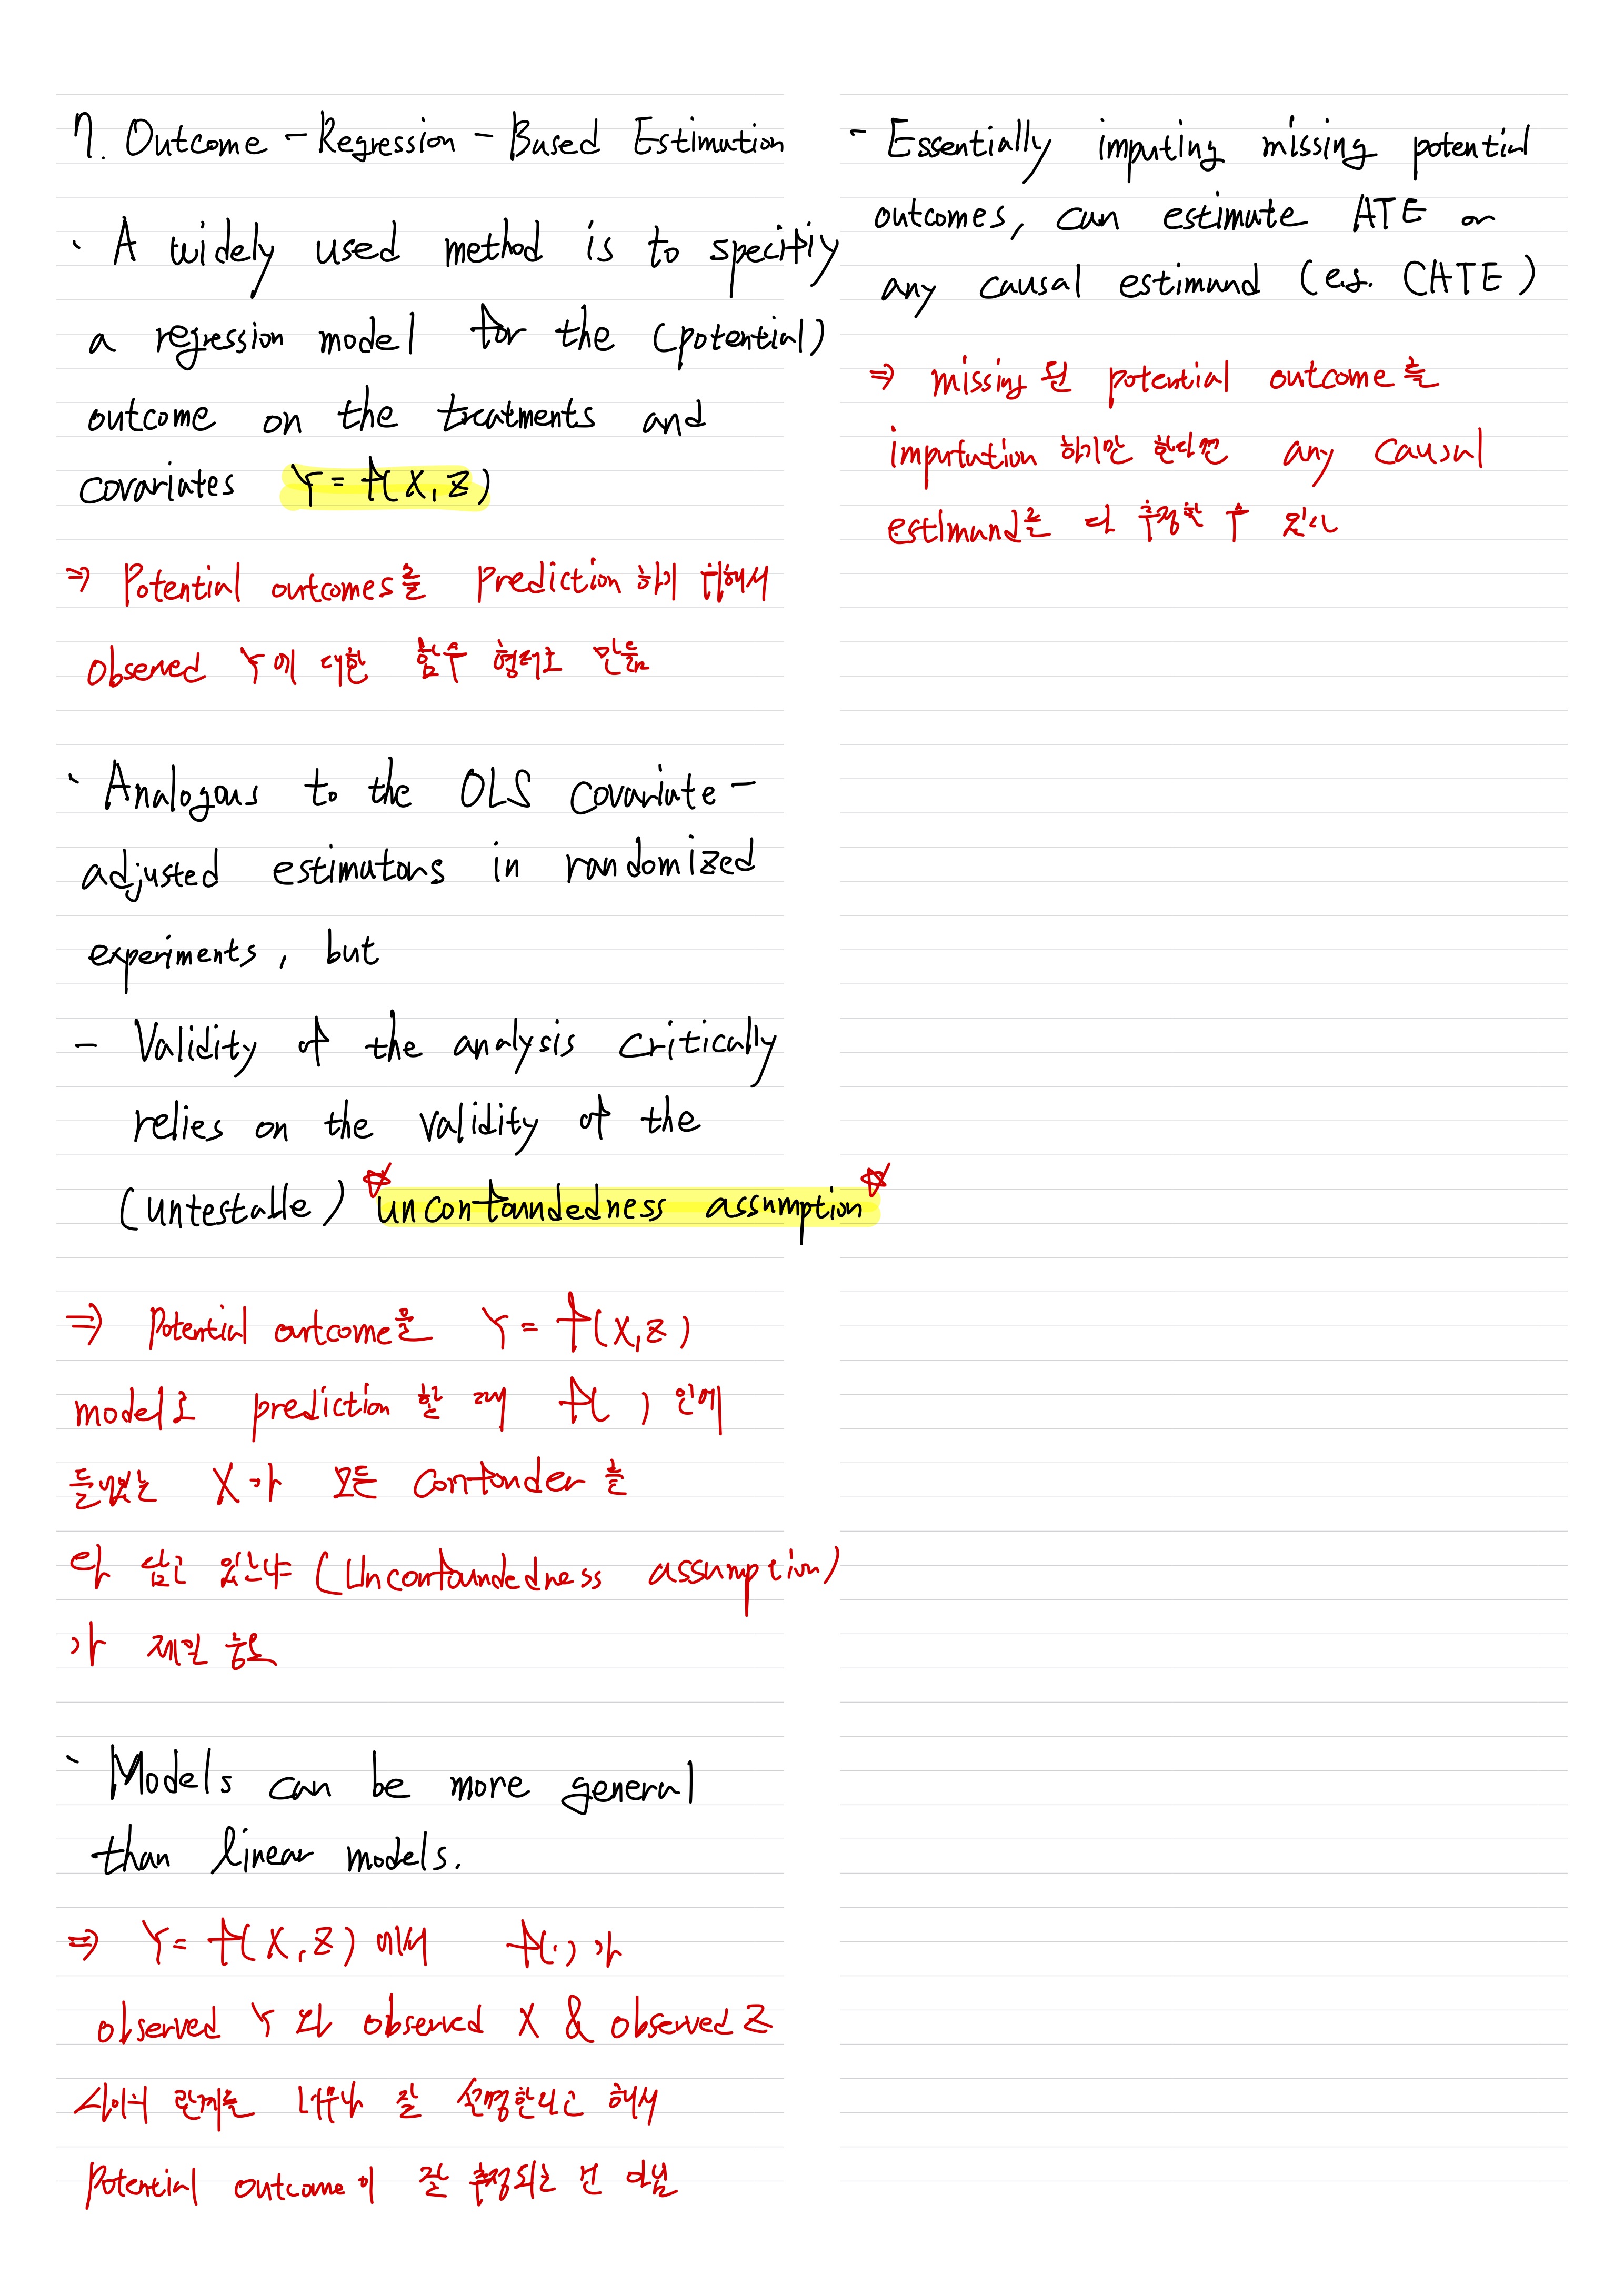 7. Outcome - Regression - Based Estimation
· A widely used method is to specify
a regression model for the (potential)
outcome on the treatments and
covariates Y = f(X, Z)
⇒ Potential outcomes를 prediction 하기 위해서
observed Y에 대한 함수 형태로 만듦
· Analogous to the OLS covariate -
adjusted estimators in randomized
experiments, but
- Validity of the analysis critically
relies on the validity of the
(untestable) ☆unconfoundedness assumption☆
⇒ Potential outcome을 Y = f(X, Z)
model로 prediction 할 때 f( ) 안에
들어있는 X가 모든 confonder를
다 담고 있느냐 (Unconfoundedness assumption)
가 제일 중요
· Models can be more general
than linear models.
⇒ Y = f(X, Z) 에서 f(·)가
observed Y와 observed X & observed Z
사이의 관계를 너무나 잘 설명한다고 해서
Potential outcome이 잘 추정되는 건 아님
- Essentially imputing missing potential
outcomes, can estimate ATE or
any causal estimand (e.g. CATE)
⇒ missing 된 potential outcome을
imputation 하기만 한다면 any causal
estimand를 다 추정할 수 있다